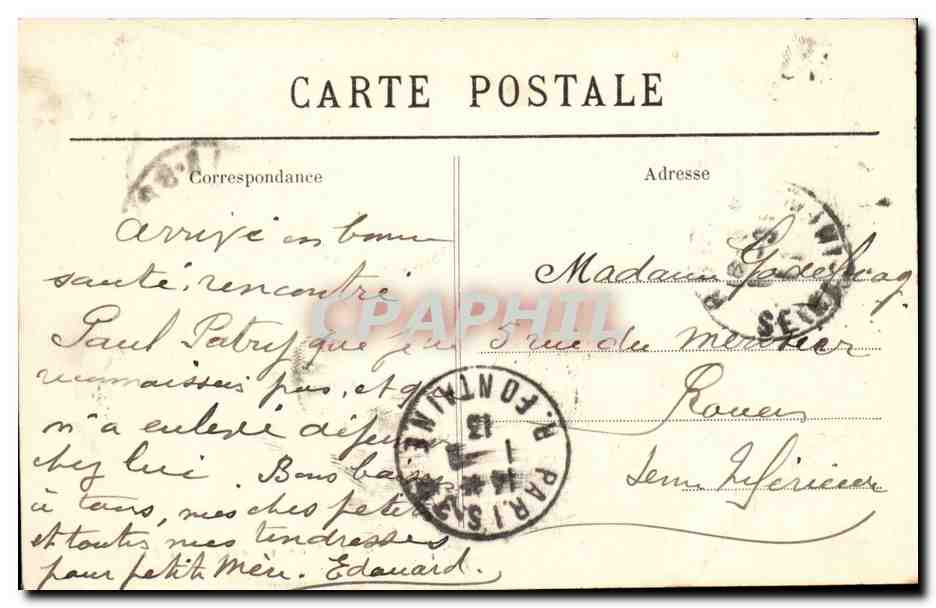 CARTE POSTALE
Correspondance
Adresse
arrivé en bonne
santé, rencontré
Paul Patry que je
connaissais pas, et q
m'a enlevé déjeuner
chez lui Bons baisers
à tous, mes chos petits
et toutes mes tendresses
pour petite Mère. Edouard.
Madame
5 rue du merisier
Rouen
Seine Inférieure
CPAPHIL
PARIS
R. FONTAINE
14
1
13
SEINE